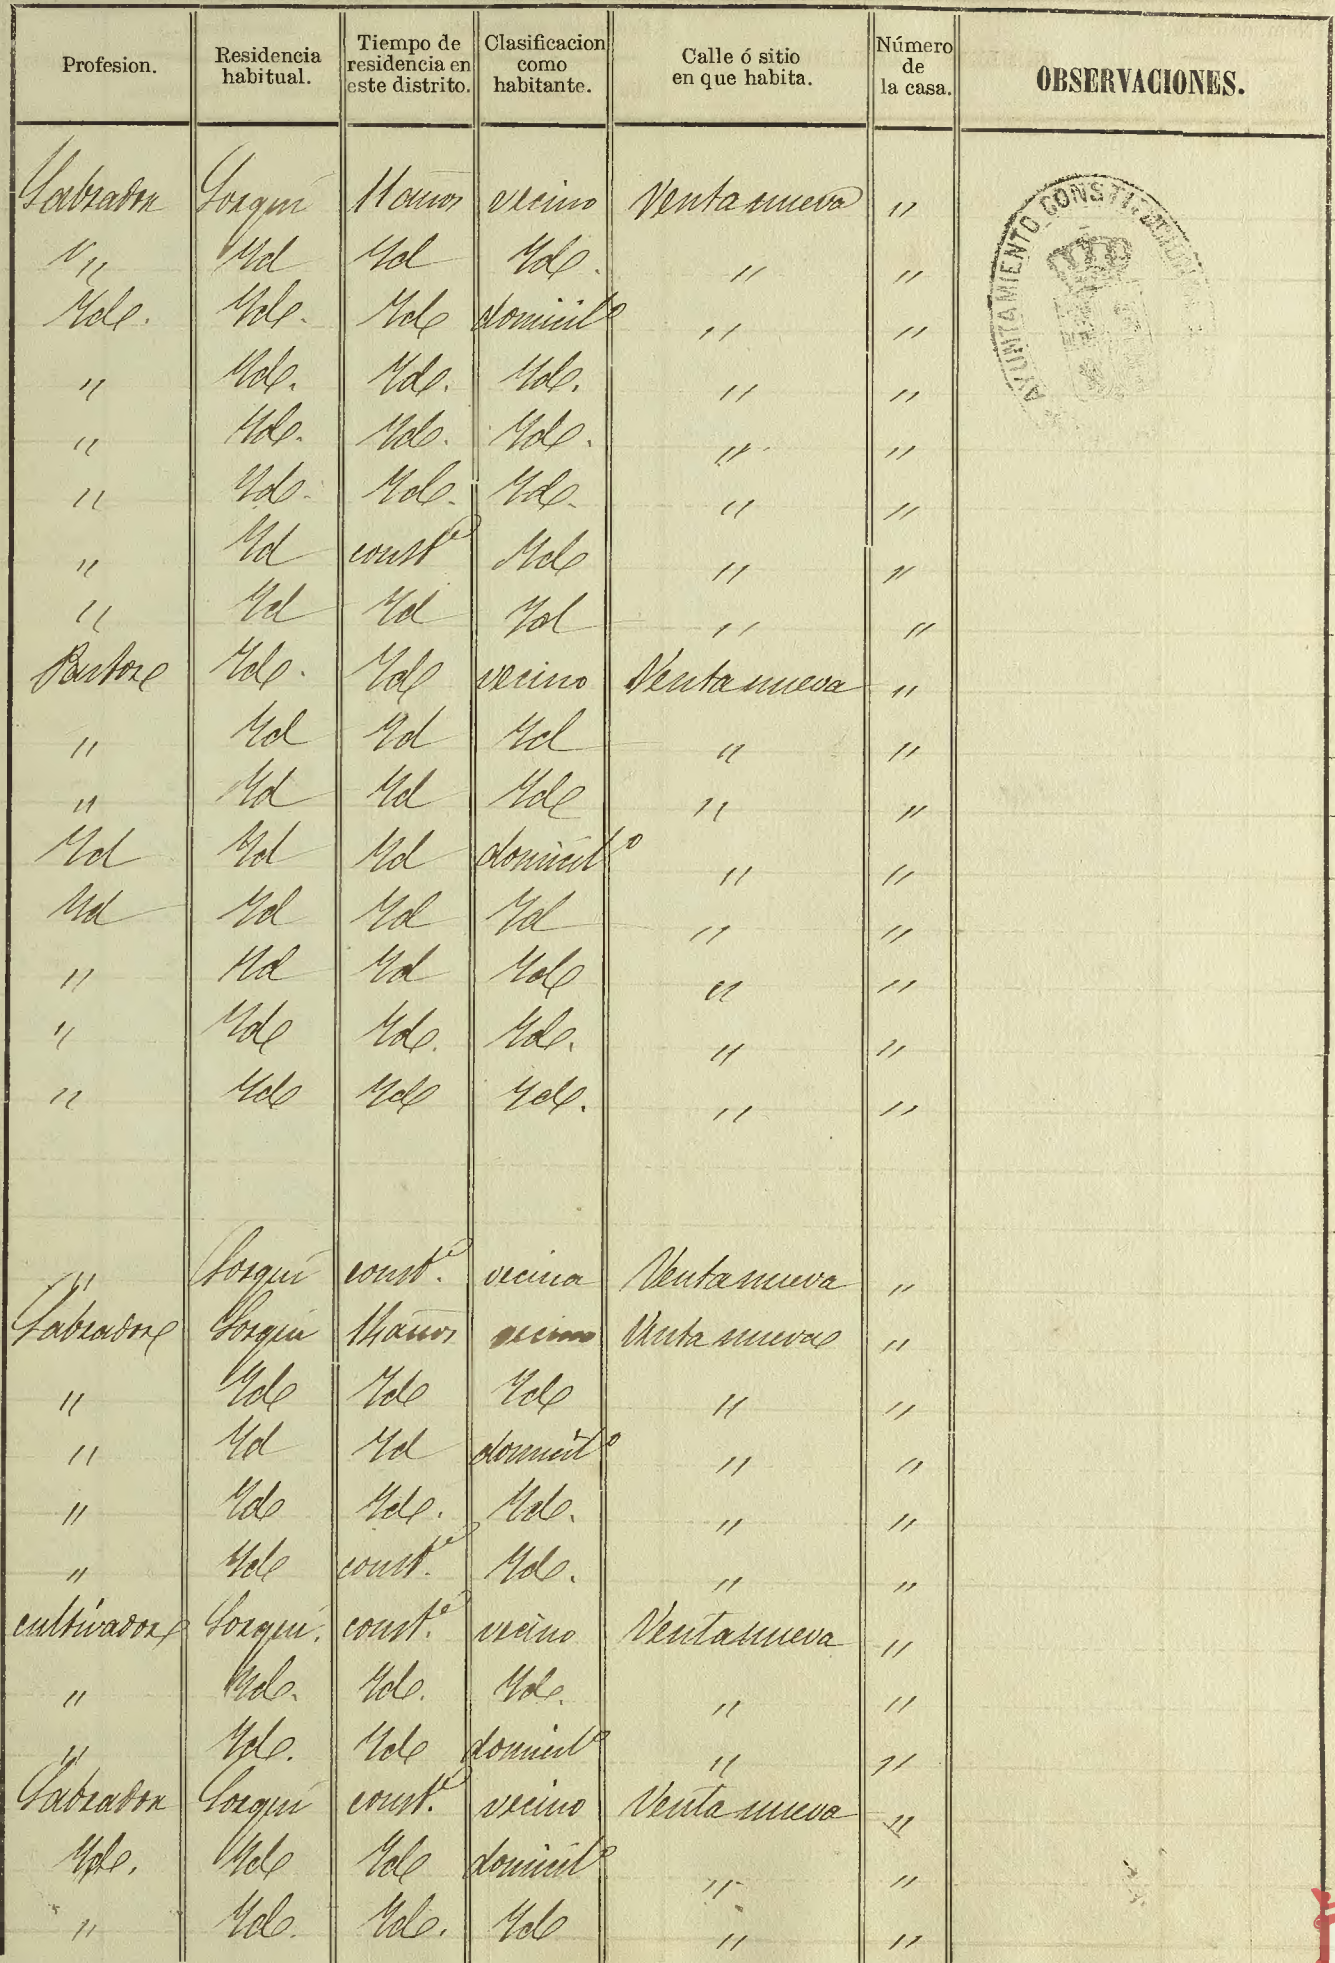 Profesion. Residencia habitual. Tiempo de residencia en este distrito. Clasificacion como habitante. Calle ó sitio en que habita. Número de la casa. OBSERVACIONES.
AYUNTAMIENTO CONSTI
Labrador Lorquí 11 años vecino Venta nueva "
" Yd Yd Yd. " "
Yd. Yd. Yd domicilº " "
" Yd. Yd. Yd. " "
" Yd. Yd. Yd. " "
" Yd. Yd. Yd. " "
" Yd constᵉ Yd " "
" Yd Yd Yd " "
Pastor Yd. Yd vecino Venta nueva "
" Yd Yd Yd " "
" Yd Yd Yd " "
Yd Yd Yd domicilº " "
Yd Yd Yd Yd " "
" Yd Yd Yd " "
" Yd Yd. Yd. " "
" Yd Yd Yd. " "
" Lorquí constᵉ. vecina Venta nueva "
Labrador Lorquí años vecino Venta nueva "
" Yd Yd Yd " "
" Yd Yd domicilº " "
" Yd Yd. Yd. " "
" Yd constᵉ. Yd. " "
cultivador Lorquí. constᵉ. vecino Venta nueva "
" Yd. Yd. Yd. " "
" Yd. Yd domicilº " "
Labrador Lorquí constᵉ. vecino Venta nueva "
Yd. Yd Yd domicilº " "
" Yd. Yd. Yd " "